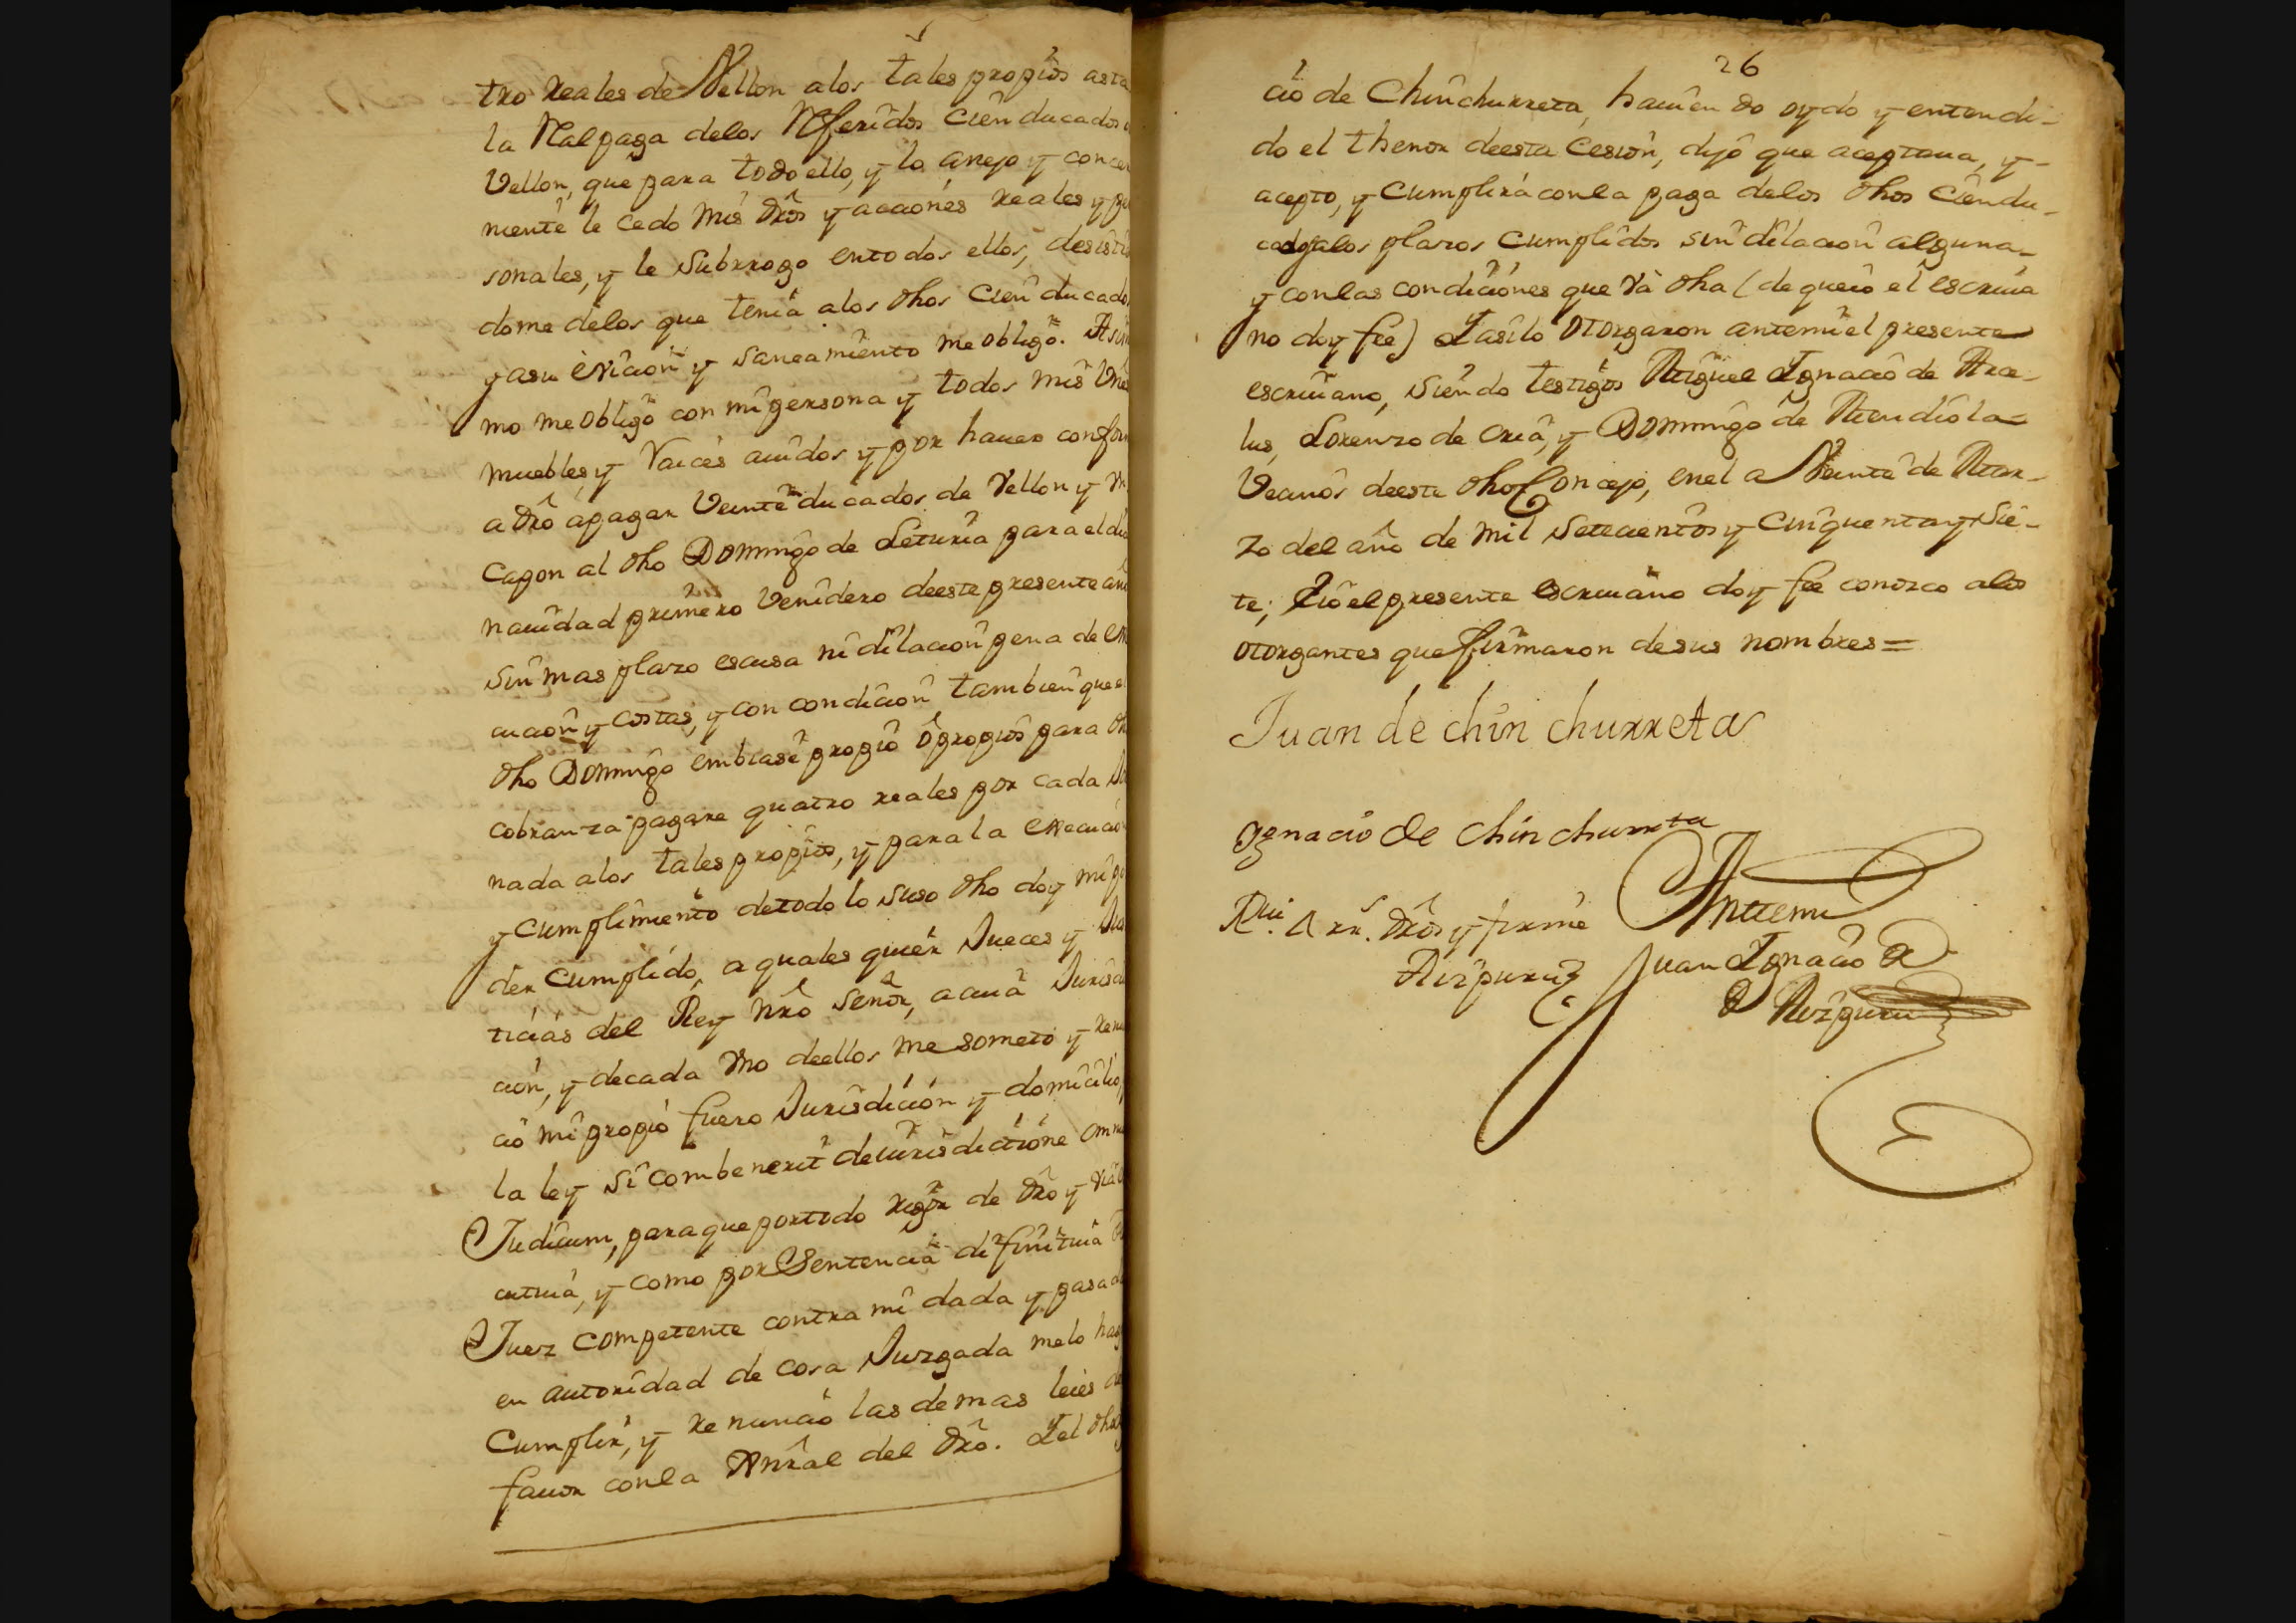 tro reales de Vellon alos tales propios asta
la Real paga delos Referidos Cien ducados
Vellon, que para todo ello, y lo anejo y conce
niente le cedo mis dros y acciones reales y pe
sonales, y le Subrrogo entodos ellos, desisti
dome delos que tenia alos dhos Cien ducados
y asu eviccion y saneamiento me obligo. Asi
mo me obligo con mi persona y todos mis Vne
muebles, y raices auidos y por hauer confor
a dro apagar Veinte ducados de Vellon y
Capon al dho Domingo de Leturia para el dia
nauidad primero Venidero deeste presente año
sin mas plazo escusa ni dilacion pena de
cucion y costas, y con condicion tambien que el
dho Domingo embiase propio ô propios para
cobranza pagare quatro reales por cada
nada alos tales propios, y para la execucion
y cumplimiento detodo lo suso dho doy mi po
der cumplido, a quales quier Jueces y Jus
ticias del Rey nro Señor, a cuia Jurisdi
cion, y decada Vno deellos me someto y renun
cio mi propio fuero Jurisdicion y domicilio,
la ley si combenerit deiurisdictione omni
Judicum, para que portodo rigor de dro y via
cutiua, y como por Sentencia difinitiua
Juez competente contra mi dada y pasada
en autoridad de cosa Juzgada melo hag
Cumplir, y renuncio las demas leies de
fauor conla Gnral del dro. Y el dho
26
cio de Chinchurreta, hauiendo oydo y entendi-
do el thenor deesta Cesion, dijo que aceptaua, y-
acepto, y Cumplirá conla paga delos dhos Ciendu-
cados alos plazos Cumplidos sin dilacion alguna-
y conlas condiciones que vâ dha (de que io el escriua
no doy fee) Y asilo otorgaron antemi el presente
escriuano, siendo testigos Miguel Ignacio de Ara-
lus, Lorenzo de Oria, y Domingo de Mendiola-
Vecinos deeste dho Concejo, enel a Veinte de Mar-
zo del año de mil Setecientos y Cinquenta y Sie-
te; Y io el presente escriuano doy fee conozco alos
otorgantes que firmaron de sus nombres=
Juan de chin churreta
Ygnacio de chin churreta
Anttemi
Rui. Arr. dros y firmé
Aizpuru
Juan Ignacio
de Aizpuru